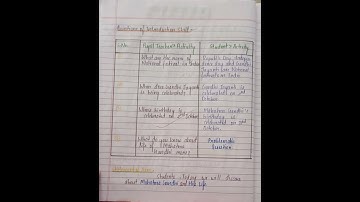 Questions of Introduction Skill:-
S.No. Pupil Teacher's Activity Student's Activity
1. What are the name of National festival in India
Republic Day, Independence day and Gandhi Jayanti are National festival in India
2. When does Gandhi Jayanti is being celebrated
Gandhi Jayanti is celebrated on 2nd October
3. Whose birthday is celebrated on 2nd October
Mahatma Gandhi's birthday is celebrated on 2nd October.
4. What do you know about life of Mahatma Gandhi
Problematic Question
Students, Today we will discuss
about Mahatma Gandhi and His Life